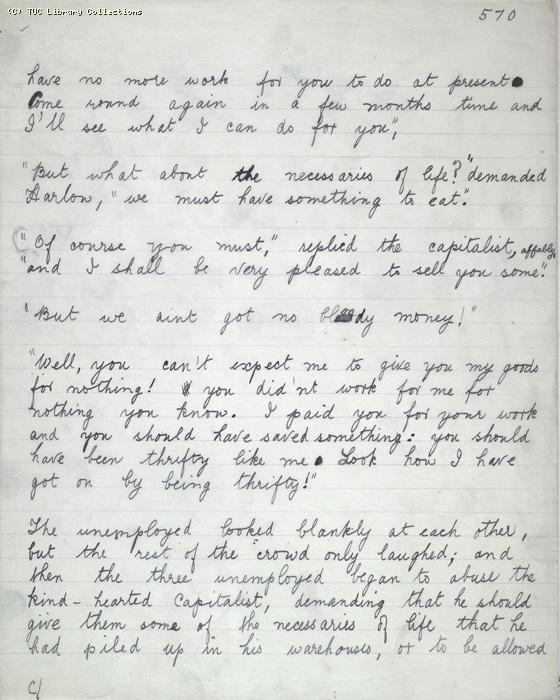 (C) TUC Library Collections
570
have no more work for you to do at present.
Come round again in a few months time and
I'll see what I can do for you",
"But what about the necessaries of life?" demanded
Harlow, "we must have something to eat".
"Of course you must," replied the capitalist, affably,
"and I shall be very pleased to sell you some".
"But we aint got no bloody money!"
"Well, you can't expect me to give you my goods
for nothing! you did'nt work for me for
nothing you know. I paid you for your work
and you should have saved something: you should
have been thrifty like me. Look how I have
got on by being thrifty!"
The unemployed looked blankly at each other,
but the rest of the crowd only laughed; and
then the three unemployed began to abuse the
kind-hearted Capitalist, demanding that he should
give them some of the necessaries of life that he
had piled up in his warehouses, or to be allowed
c/